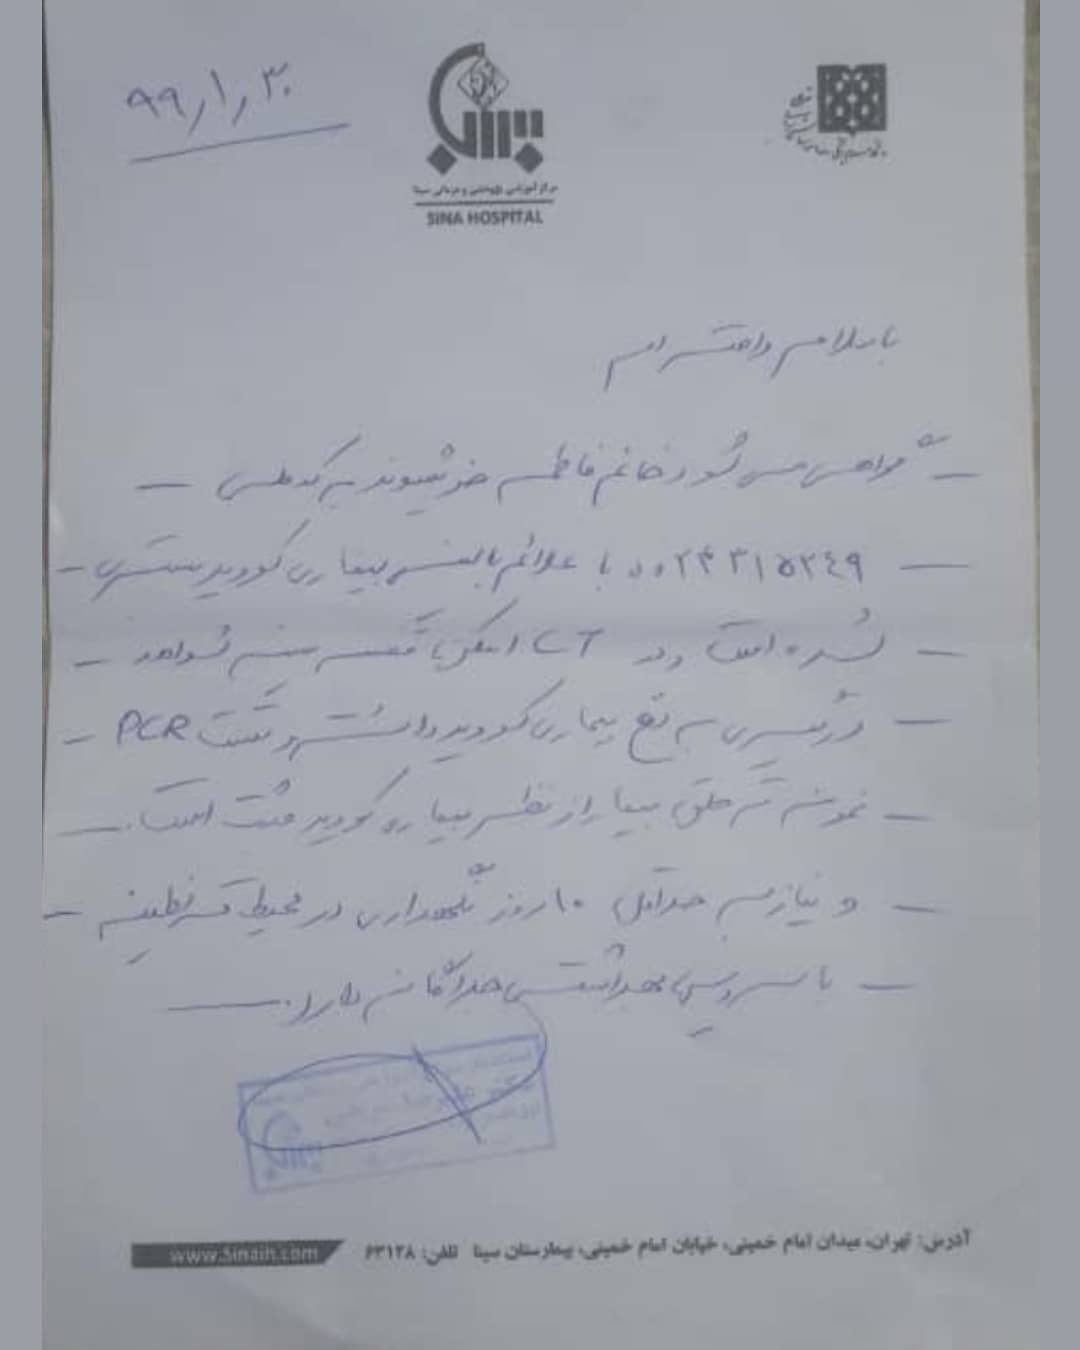 ۹۹٫۱٫۳۰
مرکز آموزشی پژوهشی و درمانی سینا
SINA HOSPITAL
با سلام و احترام
گواهی می شود خانم فاطمه به کد ملی
۰۰۲۴۳۱۵۳۴۹ با علائم بالینی بیماری کووید بستری
شده است و در CT اسکن با قفسه سینه شواهد
درگیری به نفع بیماری کووید داشته و تست PCR
نمونه ته حلق بیمار از نظر بیماری کووید مثبت است.
و نیاز به حداقل ۱۰ روز نگهداری در محیط قرنطینه
با سرویس بهداشتی جداگانه دارد.
آدرس: تهران، میدان امام خمینی، خیابان امام خمینی، بیمارستان سینا تلفن: ۶۳۱۲۸
www.Sinaih.com